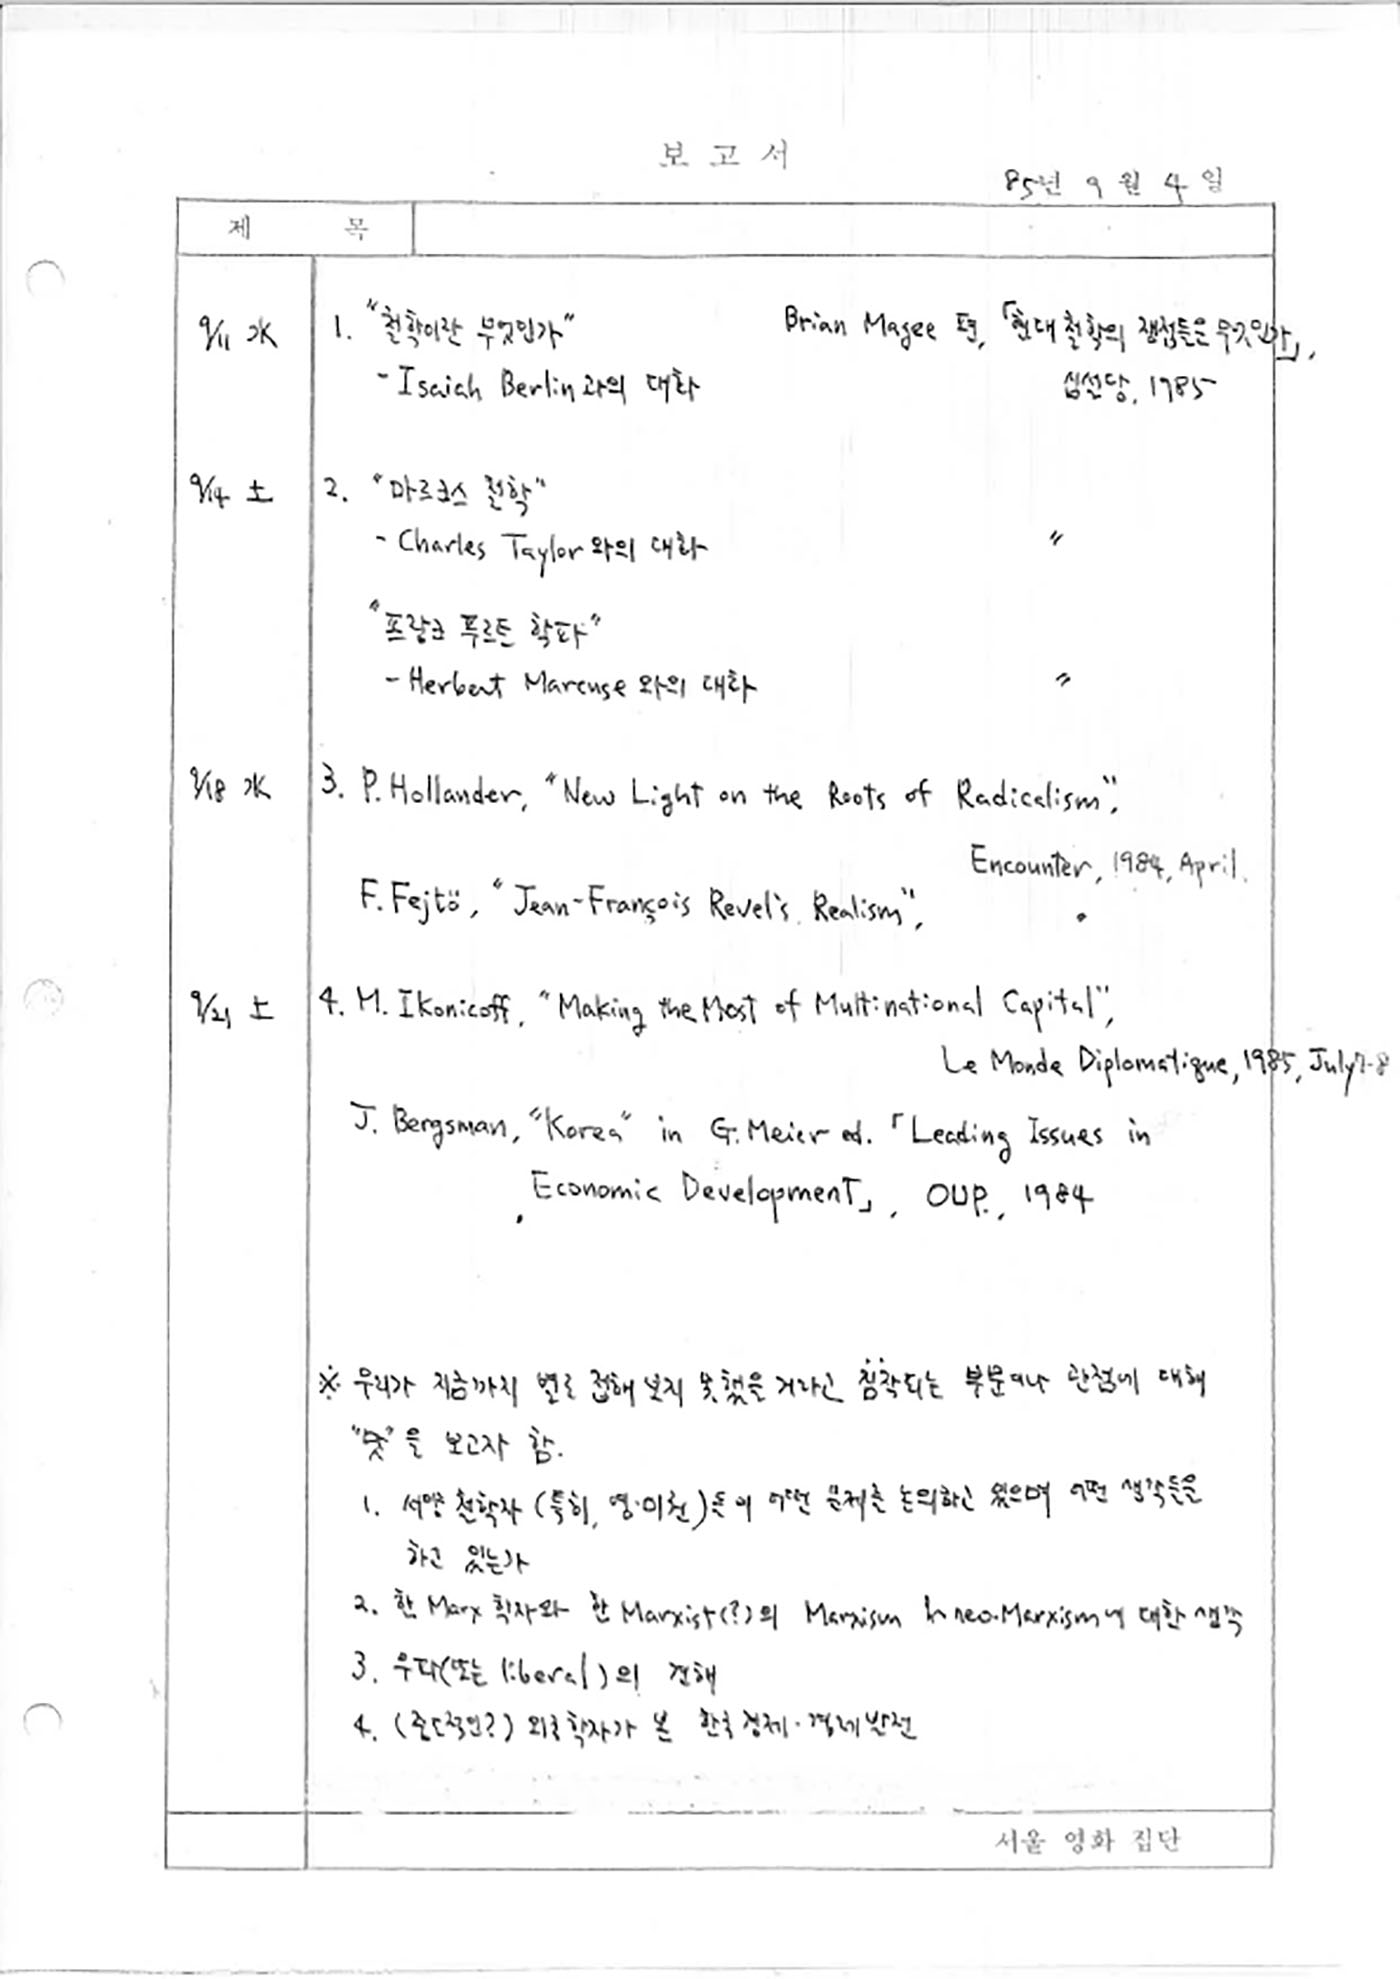 보고서
85년 9월 4일
제 목
9/11 水 1. "철학이란 무엇인가" Brian Magee 편, 「현대 철학의 쟁점들은 무엇인가」,
- Isaiah Berlin과의 대화 심설당, 1985
9/14 土 2. "마르크스 철학"
- Charles Taylor와의 대화 〃
"프랑크 푸르트 학파"
- Herbert Marcuse와의 대화 〃
9/18 水 3. P. Hollander, "New Light on the Roots of Radicalism",
Encounter, 1984, April.
F. Fejtö, "Jean-François Revel's Realism",
9/21 土 4. M. Ikonicoff, "Making the Most of Multinational Capital",
Le Monde Diplomatique, 1985, July 7-8
J. Bergsman, "Korea" in G. Meier ed. 「Leading Issues in
Economic Development」, OUP., 1984
※ 우리가 지금까지 별로 접해 보지 못했을 거라고 짐작되는 부분이나 관점에 대해
"맛"을 보고자 함.
1. 서양 철학자 (특히, 영·미권)들이 어떤 문제를 논의하고 있으며 어떤 생각들을
하고 있는가
2. 한 Marx 학자와 한 Marxist(?)의 Marxism neo-Marxism에 대한 생각
3. 우파(또는 liberal)의 견해
4. (중도적인?) 외국학자가 본 한국경제·경제발전
서울 영화 집단